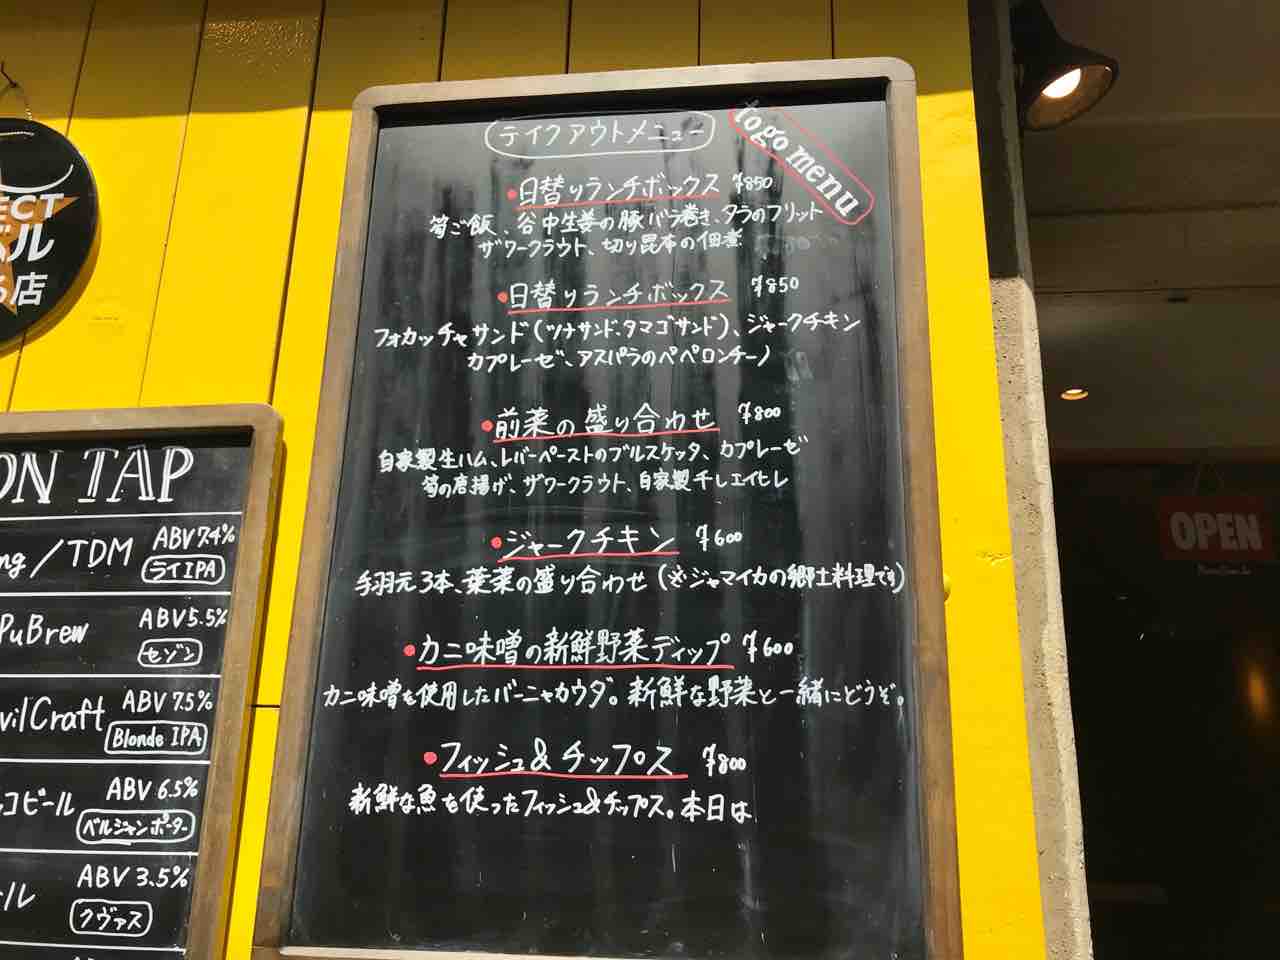 テイクアウトメニュー
togo menu
・日替りランチボックス ¥850
筍ご飯、谷中生姜の豚バラ巻き、タラのフリット
ザワークラウト、切り昆布の佃煮
・日替りランチボックス ¥850
フォカッチャサンド(ツナサンド、タマゴサンド)、ジャークチキン
カプレーゼ、アスパラのペペロンチーノ
・前菜の盛り合わせ ¥800
自家製生ハム、レバーペーストのブルスケッタ、カプレーゼ
筍の唐揚げ、ザワークラウト、自家製干しエイヒレ
・ジャークチキン ¥600
手羽元3本、葉菜の盛り合わせ(※ジャマイカの郷土料理です)
・カニ味噌の新鮮野菜ディップ ¥600
カニ味噌を使用したバーニャカウダ。新鮮な野菜と一緒にどうぞ。
・フィッシュ&チップス ¥800
新鮮な魚を使ったフィッシュ&チップス。本日は
ECT
バル
る店
ON TAP
ng/TDM ABV 7.4%
ライIPA
PuBrew ABV 5.5%
セゾン
vilCraft ABV 7.5%
Blonde IPA
コビール ABV 6.5%
ベルジャンポーター
ール ABV 3.5%
クヴァス
AB
OPEN